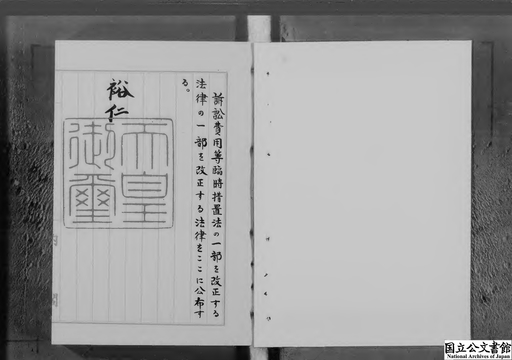 訴訟費用等臨時措置法の一部を改正する
法律の一部を改正する法律をここに公布す
る。
裕仁
天皇
御璽
国立公文書館
National Archives of Japan